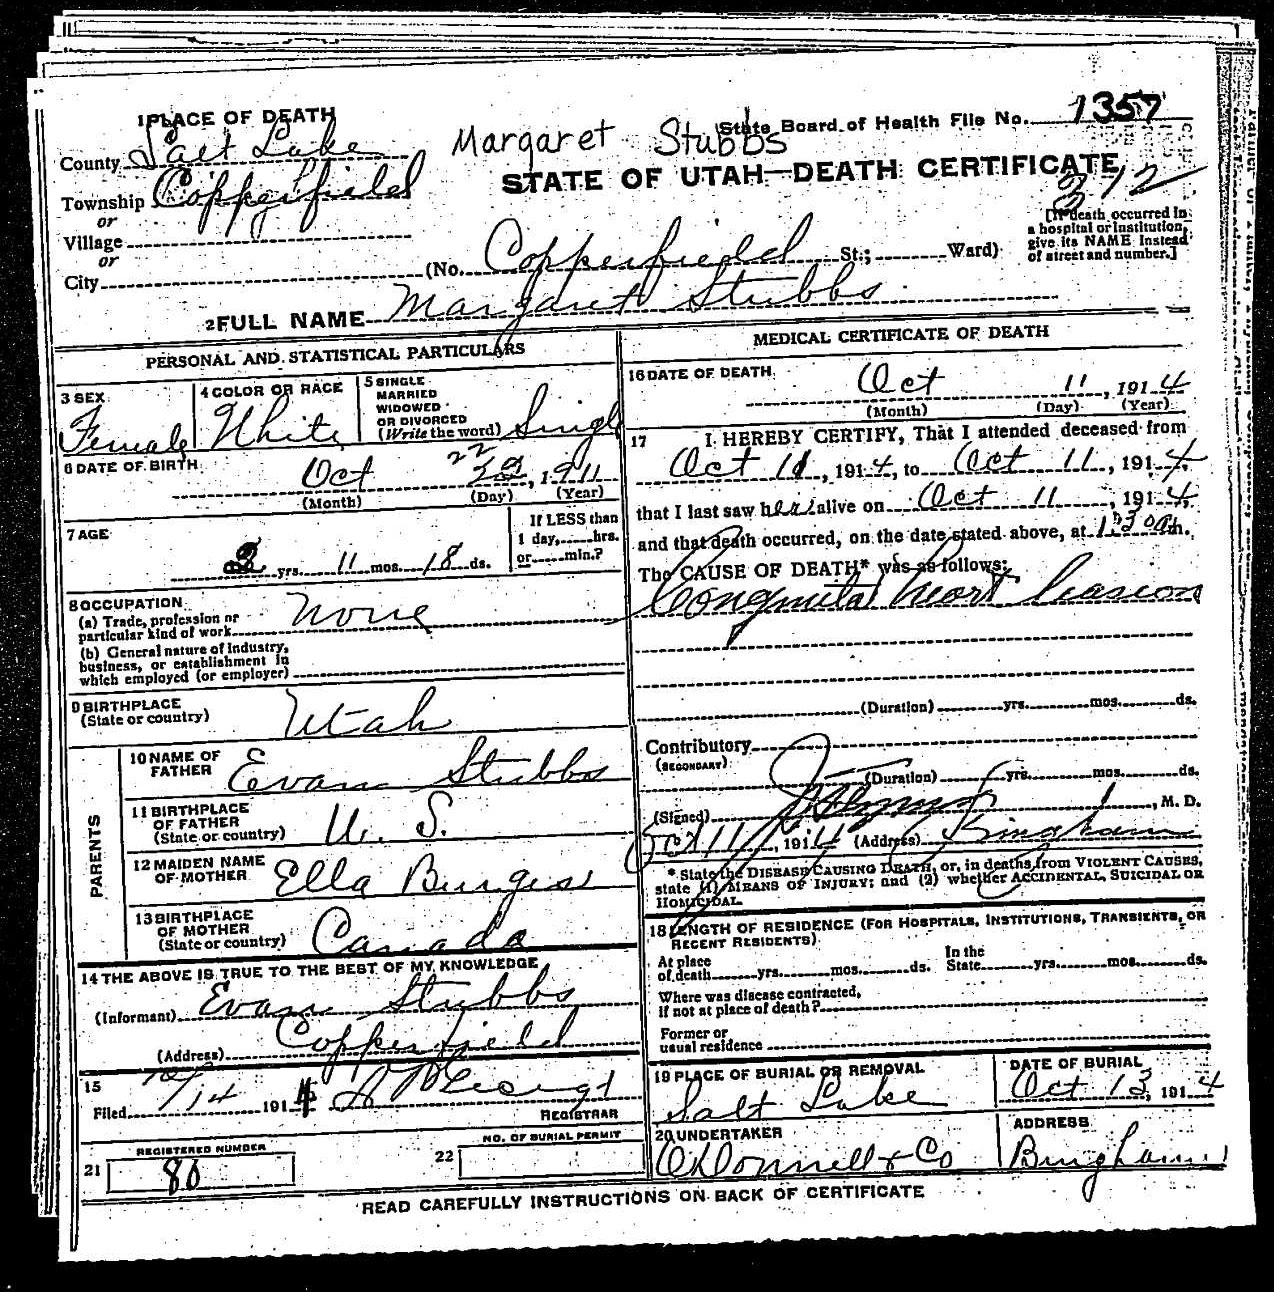 1 PLACE OF DEATH
County Salt Lake
Township Copperfield
or
Village
or
City
Margaret Stubbs
State Board of Health File No. 1357
STATE OF UTAH—DEATH CERTIFICATE
372
[If death occurred in a hospital or institution, give its NAME instead of street and number.]
(No. Copperfield St.; Ward)
2 FULL NAME Margaret Stubbs
PERSONAL AND STATISTICAL PARTICULARS
3 SEX
Female
4 COLOR OR RACE
White
5 SINGLE
MARRIED
WIDOWED
OR DIVORCED
(Write the word) Single
6 DATE OF BIRTH
Oct 22, 1911
(Month) (Day) (Year)
7 AGE
2 yrs. 11 mos. 18 ds.
If LESS than
1 day, hrs.
or min.?
8 OCCUPATION
(a) Trade, profession or
particular kind of work None
(b) General nature of industry,
business, or establishment in
which employed (or employer)
9 BIRTHPLACE
(State or country) Utah
PARENTS
10 NAME OF
FATHER Evan Stubbs
11 BIRTHPLACE
OF FATHER
(State or country) U. S.
12 MAIDEN NAME
OF MOTHER Ella Burgess
13 BIRTHPLACE
OF MOTHER
(State or country) Canada
14 THE ABOVE IS TRUE TO THE BEST OF MY KNOWLEDGE
(Informant) Evan Stubbs
(Address) Copperfield
15
Filed 10/14 1914
REGISTRAR
21 REGISTERED NUMBER
80
22 NO. OF BURIAL PERMIT
MEDICAL CERTIFICATE OF DEATH
16 DATE OF DEATH
Oct 11, 1914
(Month) (Day) (Year)
17 I HEREBY CERTIFY, That I attended deceased from
Oct 11, 1914, to Oct 11, 1914,
that I last saw her alive on Oct 11, 1914,
and that death occurred, on the date stated above, at 1:30 am.
The CAUSE OF DEATH* was as follows:
Congenital heart leasion
(Duration) yrs. mos. ds.
Contributory
(SECONDARY)
(Duration) yrs. mos. ds.
(Signed) , M. D.
Oct 11, 1914 (Address) Bingham
* State the DISEASE CAUSING DEATH, or, in deaths from VIOLENT CAUSES,
state (1) MEANS OF INJURY; and (2) whether ACCIDENTAL, SUICIDAL OR
HOMICIDAL.
18 LENGTH OF RESIDENCE (FOR HOSPITALS, INSTITUTIONS, TRANSIENTS, OR
RECENT RESIDENTS)
At place
of death yrs. mos. ds.
In the
State yrs. mos. ds.
Where was disease contracted,
if not at place of death?
Former or
usual residence
19 PLACE OF BURIAL OR REMOVAL
Salt Lake
DATE OF BURIAL
Oct 13, 1914
20 UNDERTAKER
O'Donnell & Co
ADDRESS
Bingham
READ CAREFULLY INSTRUCTIONS ON BACK OF CERTIFICATE